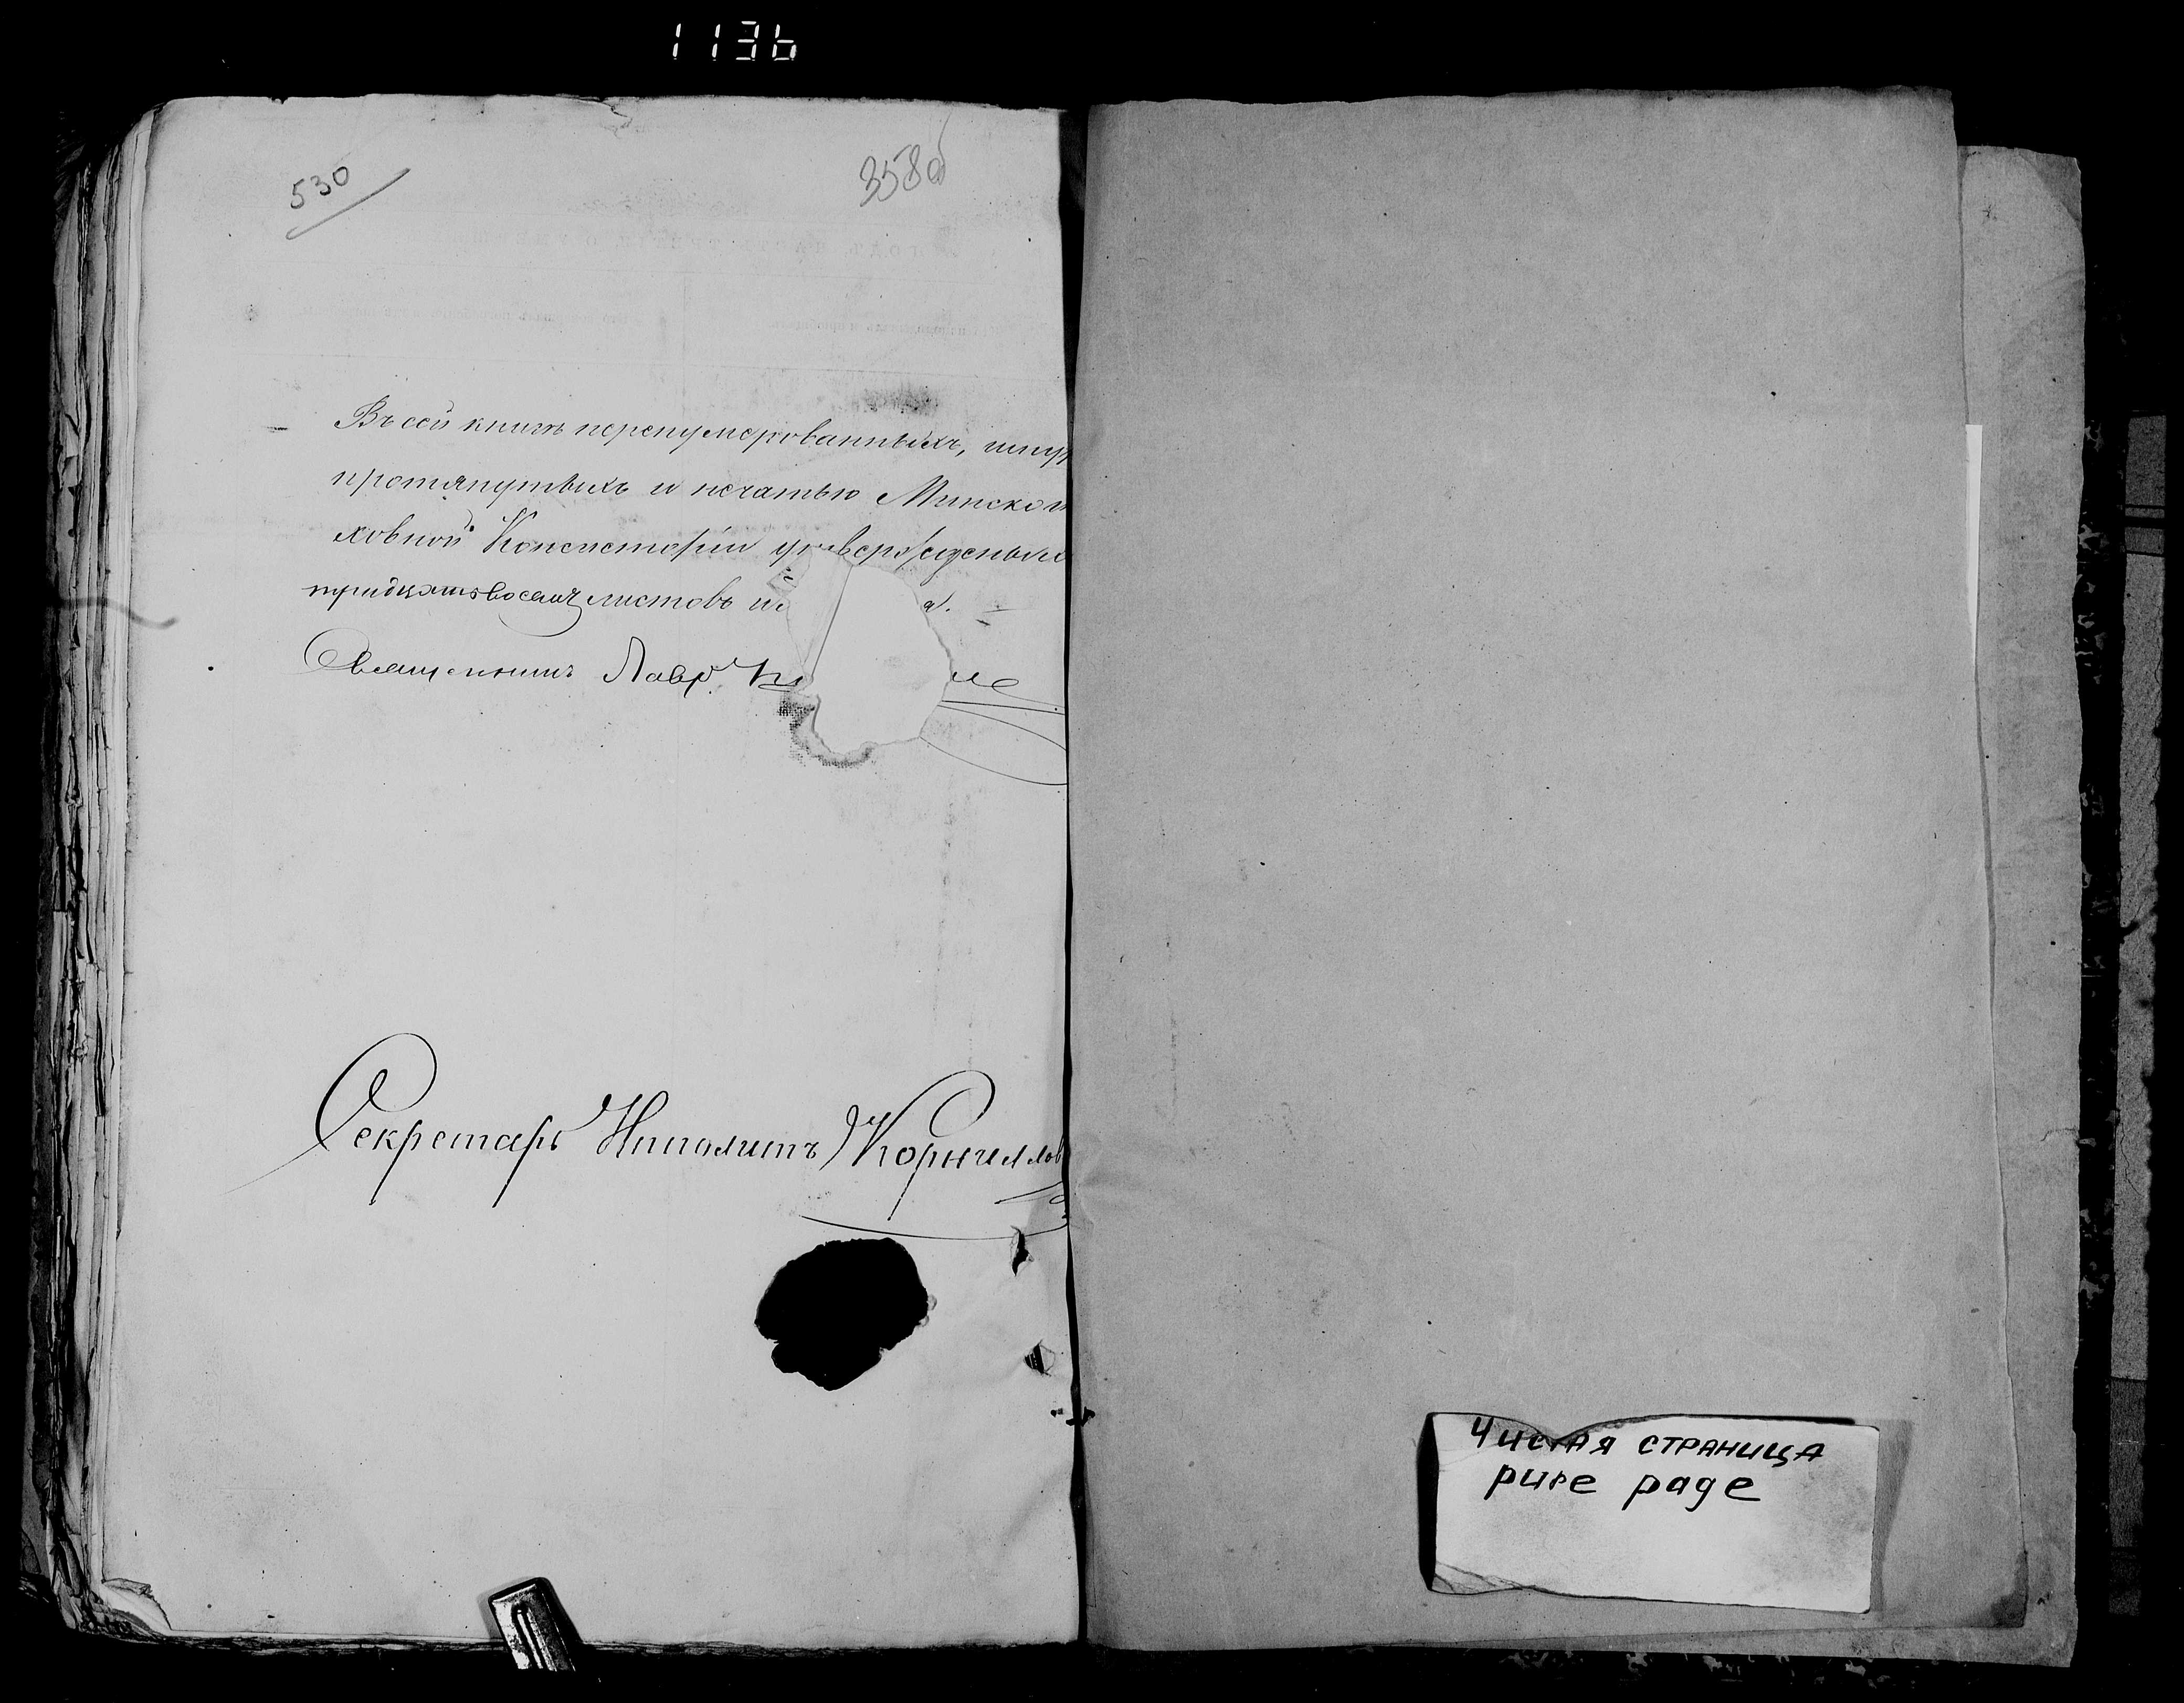 1136
530
358об
Въ сей книгѣ перенумерованныхъ, шнур
протянутыхъ и печатью Минской
ховной Консисторіи утвержденныхъ
тридцать восемь листовъ
Священникъ Лавр.
Секретарь Ипполитъ Корнилов
Чистая страница
pure page